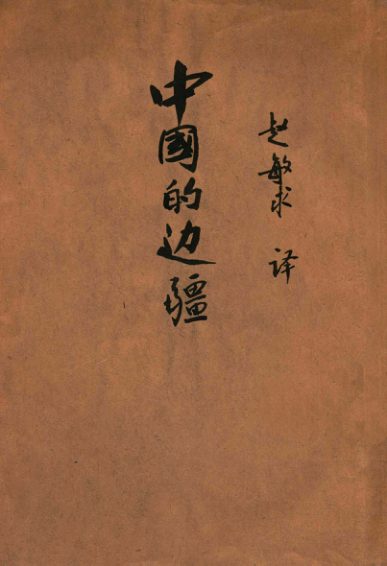 中國的边疆
赵敏求 译